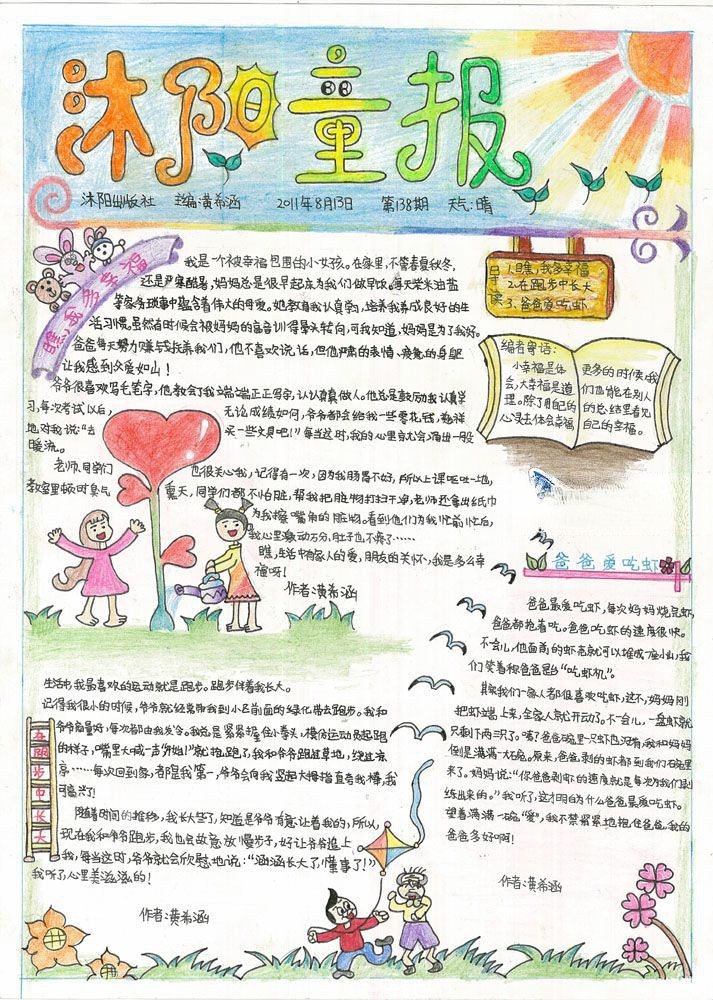 沐阳童报
沐阳出版社 主编:黄希涵 2011年8月13日 第138期 天气:晴
瞧,我多幸福
我是一个被幸福包围的小女孩。在家里,不管春夏秋冬,
还是严寒酷暑,妈妈总是很早起床为我们做早饭。每天柴米油盐
等家务琐事中蕴含着伟大的母爱。她教育我认真学习,培养我养成良好的生
活习惯。虽然有时候会被妈妈的声音训得晕头转向,可我知道,妈妈是为了我好。
爸爸每天努力赚钱抚养我们,他不喜欢说话,但他严肃的表情、疲惫的身躯
让我感到父爱如山!
爷爷很喜欢写毛笔字,他教会了我端端正正写字,认认真真做人。他总是鼓励我认真学
习,每次考试以后,无论成绩如何,爷爷都会给我一些零花钱,慈祥
地对我说:“去买一些文具吧!”每当这时,我的心里就会涌出一股
暖流。
老师、同学们也很关心我,记得有一次,因为我肠胃不好,所以上课呕吐一地,
教室里顿时臭气熏天,同学们都不怕脏,帮我把脏物打扫干净,老师还拿出纸巾
为我擦嘴角的脏物。看到他们为我忙前忙后,
我心里激动万分,肚子也不疼了……
瞧,生活中有家人的爱,朋友的关怀,我是多么幸
福呀!
作者:黄希涵
目录
1.瞧,我多幸福
2.在跑步中长大
3、爸爸爱吃虾
编者寄语:
小幸福是体
会,大幸福是道
理。除了用自己的
心灵去体会幸福
更多的时候,我
们也能在别人
的总结里看见
自己的幸福。
爸爸爱吃虾
爸爸最爱吃虾,每次妈妈烧完虾,
爸爸都抢着吃。爸爸吃虾的速度很快。
不会儿,他面前的虾壳就可以堆成一座小山,我
们笑着称爸爸是“吃虾机”。
其实我们一家人都很喜欢吃虾,这不,妈妈刚
把虾端上来,全家人就开动了。不一会儿,一盘虾就
只剩下两三只了。咦?爸爸碗里一只虾也没有,我和妈妈
倒是满满一大碗。原来,爸爸剥的虾都到我们碗里
来了。妈妈说:“你爸爸剥虾的速度就是每次为我们剥
练出来的。”我听了,这才明白为什么爸爸最爱吃虾。
望着满满一碗“爱”,我不禁紧紧地抱住爸爸,我的
爸爸多好啊!
作者:黄希涵
在跑步中长大
生活中,我最喜欢的运动就是跑步。跑步伴着我长大。
记得我很小的时候,爷爷就经常带我到小区前面的绿化带去跑步。我和
爷爷商量好,每次都由我发令。我总是紧紧握住小拳头,模仿运动员起跑
的样子,嘴里大喊一声“开始!”就抢跑了,我和爷爷跑过草地,绕过凉
亭……每次回到家,都是我第一,爷爷会向我竖起大拇指直夸我棒,我
可高兴了!
随着时间的推移,我长大些了,知道是爷爷有意让着我的,所以,
现在我和爷爷跑步,我也会故意放慢步子,好让爷爷追上
我,每当这时,爷爷就会欣慰地说:“涵涵长大了,懂事了!”
我听了心里美滋滋的!
作者:黄希涵